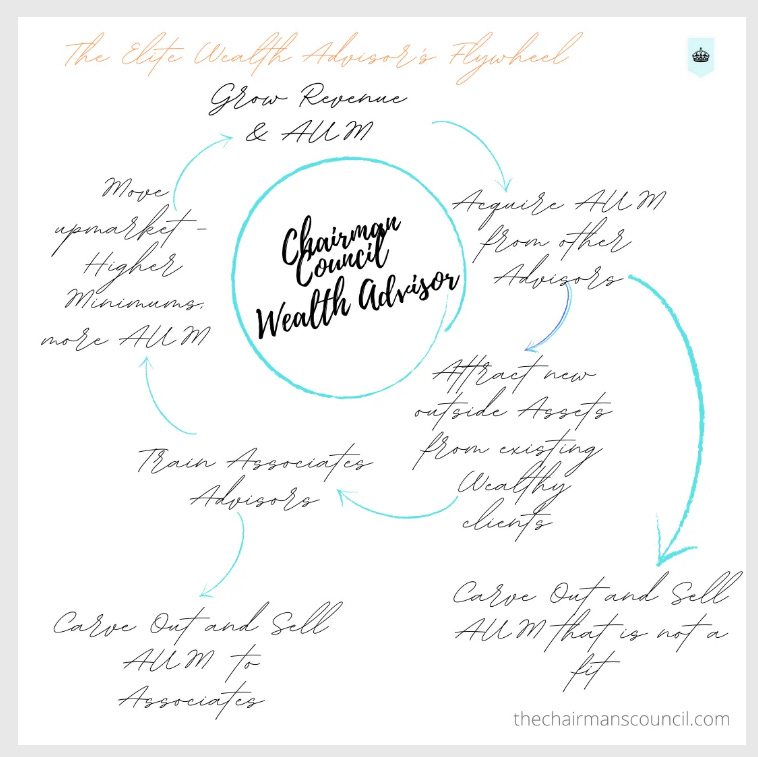 The Elite Wealth Advisor's Flywheel
Grow Revenue
& AUM
Acquire AUM
from other
Advisors
Attract new
outside Assets
from existing
Wealthy
clients
Carve Out and Sell
AUM that is not a
fit
Train Associates
Advisors
Carve Out and Sell
AUM to
Associates
Move
upmarket -
Higher
Minimums,
more AUM
Chairman
Council
Wealth Advisor
thechairmanscouncil.com